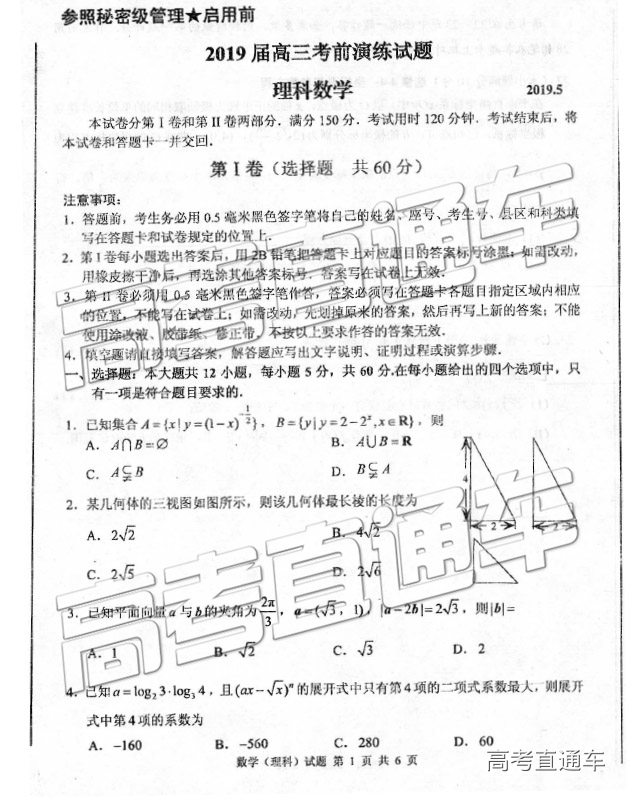 参照秘密级管理★启用前
2019 届高三考前演练试题
理科数学
2019.5
本试卷分第 I 卷和第 II 卷两部分．满分 150 分．考试用时 120 分钟．考试结束后，将
本试卷和答题卡一并交回．
第 I 卷（选择题 共 60 分）
注意事项：
1．答题前，考生务必用 0.5 毫米黑色签字笔将自己的姓名、座号、考生号、县区和科类填
写在答题卡和试卷规定的位置上．
2．第 I 卷每小题选出答案后，用 2B 铅笔把答题卡上对应题目的答案标号涂黑；如需改动，
用橡皮擦干净后，再选涂其他答案标号．答案写在试卷上无效．
3．第 II 卷必须用 0.5 毫米黑色签字笔作答，答案必须写在答题卡各题目指定区域内相应
的位置，不能写在试卷上；如需改动，先划掉原来的答案，然后再写上新的答案；不能
使用涂改液、胶带纸、修正带．不按以上要求作答的答案无效．
4．填空题请直接填写答案，解答题应写出文字说明、证明过程或演算步骤．
一、选择题：本大题共 12 小题，每小题 5 分，共 60 分.在每小题给出的四个选项中，只
有一项是符合题目要求的．
1．已知集合 A={x|y=(1-x)^{-1/2}}，B={y|y=2-2^x,x∈R}，则
A．A∩B=∅ B．A∪B=R
C．A⫋B D．B⫋A
2．某几何体的三视图如图所示，则该几何体最长棱的长度为
A．2√2 B．4√2
C．2√5 D．2√6
4
2
2
3．已知平面向量 a 与 b 的夹角为 2π/3，a=(√3，1)，|a-2b|=2√3，则|b|=
A．1 B．√2 C．√3 D．2
4．已知 a=log₂3·log₃4，且(ax-√x)ⁿ的展开式中只有第 4 项的二项式系数最大，则展开
式中第 4 项的系数为
A．-160 B．-560 C．280 D．60
数学（理科）试题 第 1 页 共 6 页
高考直通车
高考直通车
高考直通车